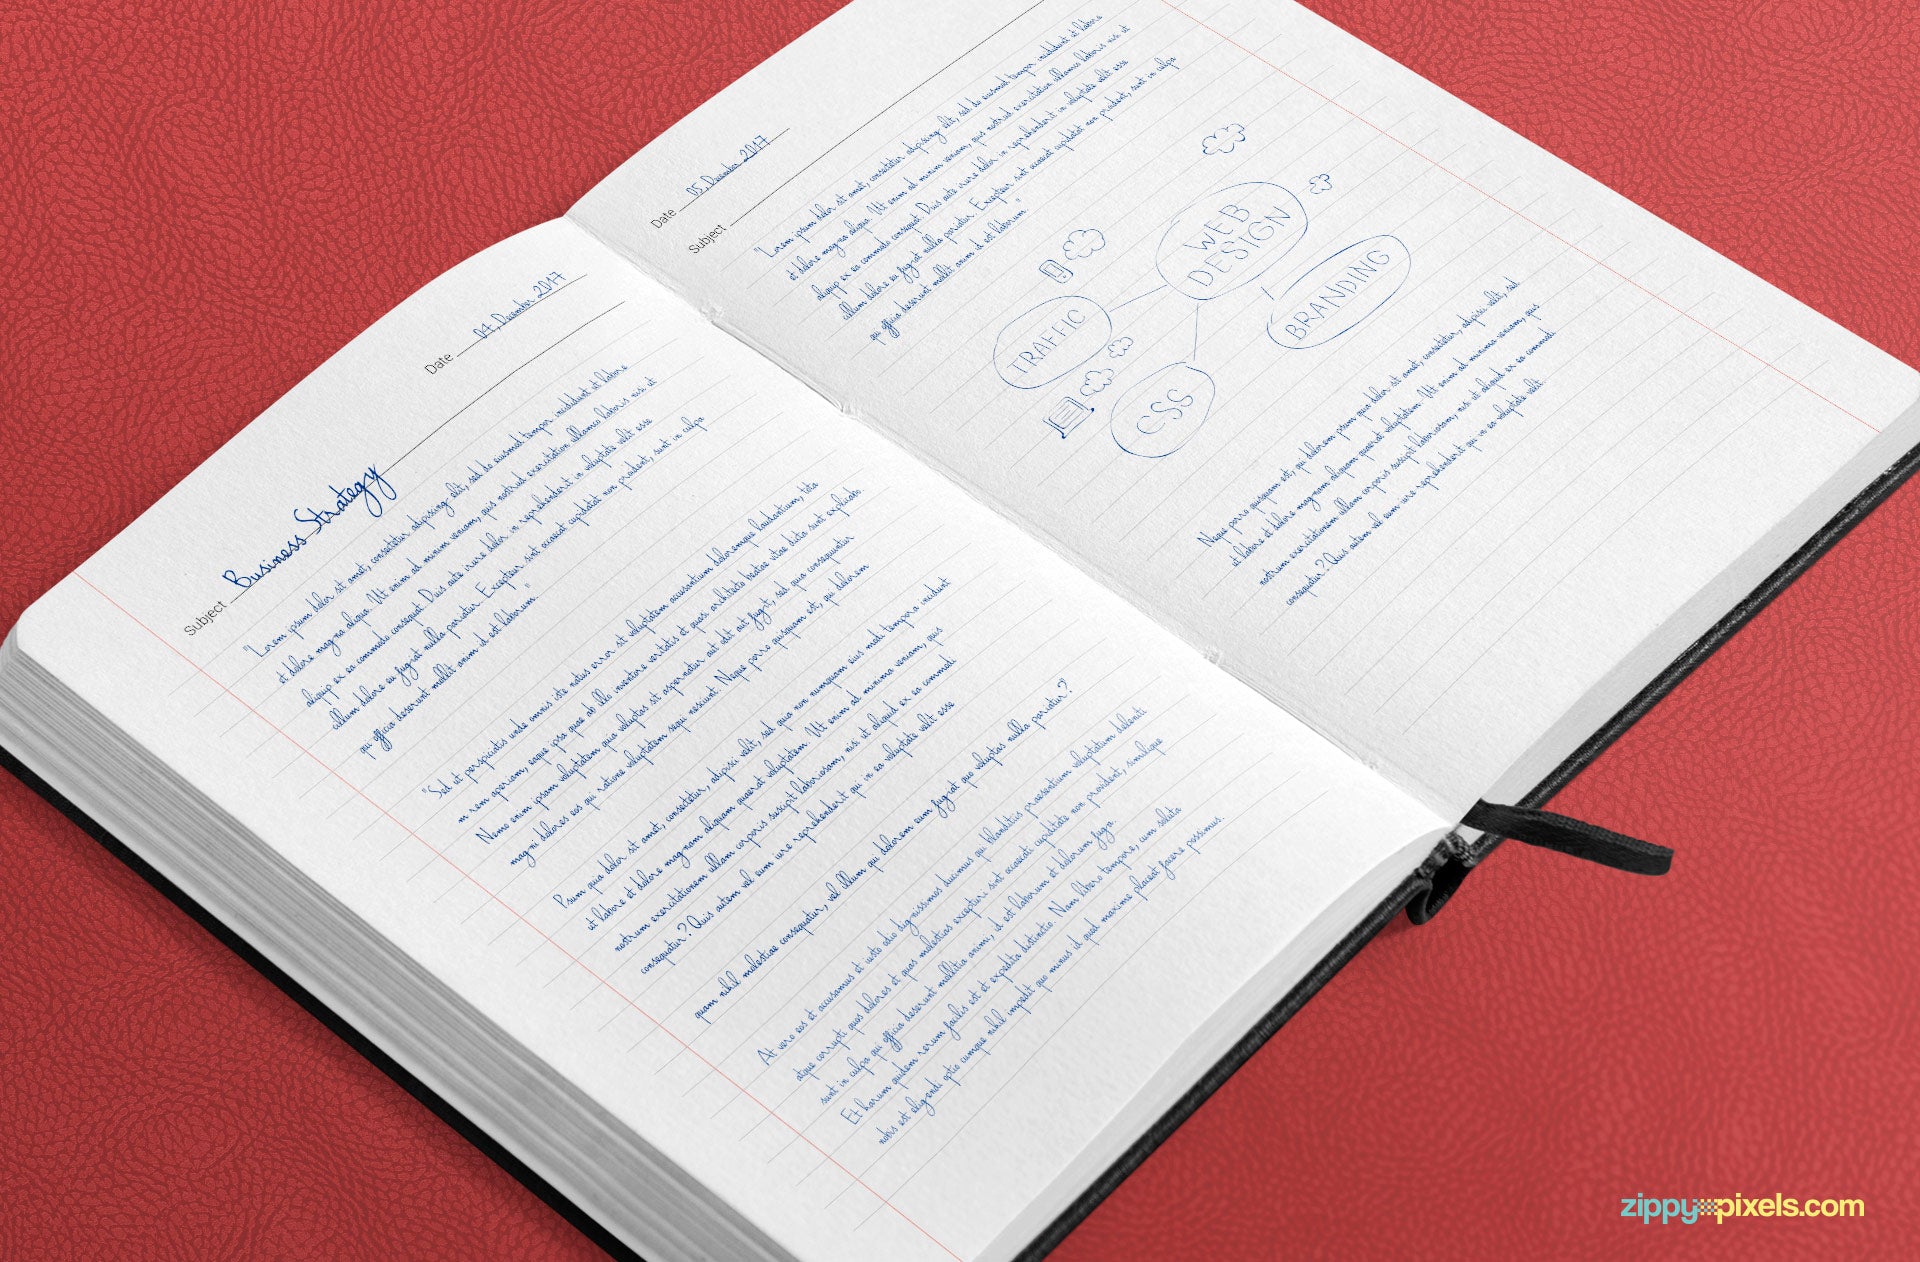 Date 04, December 2017
Subject Business Strategy
"Lorem ipsum dolor sit amet, consectetur adipiscing elit, sed do eiusmod tempor incididunt ut labore
et dolore magna aliqua. Ut enim ad minim veniam, quis nostrud exercitation ullamco laboris nisi ut
aliquip ex ea commodo consequat. Duis aute irure dolor in reprehenderit in voluptate velit esse
cillum dolore eu fugiat nulla pariatur. Excepteur sint occaecat cupidatat non proident, sunt in culpa
qui officia deserunt mollit anim id est laborum."
"Sed ut perspiciatis unde omnis iste natus error sit voluptatem accusantium doloremque laudantium, tota
m rem aperiam, eaque ipsa quae ab illo inventore veritatis et quasi architecto beatae vitae dicta sunt explicabo.
Nemo enim ipsam voluptatem quia voluptas sit aspernatur aut odit aut fugit, sed quia consequuntur
magni dolores eos qui ratione voluptatem sequi nesciunt. Neque porro quisquam est, qui dolorem
Psum quia dolor sit amet, consectetur, adipisci velit, sed quia non numquam eius modi tempora incidunt
ut labore et dolore magnam aliquam quaerat voluptatem. Ut enim ad minima veniam, quis
nostrum exercitationem ullam corporis suscipit laboriosam, nisi ut aliquid ex ea commodi
consequatur? Quis autem vel eum iure reprehenderit qui in ea voluptate velit esse
quam nihil molestiae consequatur, vel illum qui dolorem eum fugiat quo voluptas nulla pariatur?
At vero eos et accusamus et iusto odio dignissimos ducimus qui blanditiis praesentium voluptatum deleniti
atque corrupti quos dolores et quas molestias excepturi sint occaecati cupiditate non provident, similique
sunt in culpa qui officia deserunt mollitia animi, id est laborum et dolorum fuga.
Et harum quidem rerum facilis est et expedita distinctio. Nam libero tempore, cum soluta
nobis est eligendi optio cumque nihil impedit quo minus id quod maxime placeat facere possimus.
Date 05, December 2017
Subject
"Lorem ipsum dolor sit amet, consectetur adipiscing elit, sed do eiusmod tempor incididunt ut labore
et dolore magna aliqua. Ut enim ad minim veniam, quis nostrud exercitation ullamco laboris nisi ut
aliquip ex ea commodo consequat. Duis aute irure dolor in reprehenderit in voluptate velit esse
cillum dolore eu fugiat nulla pariatur. Excepteur sint occaecat cupidatat non proident, sunt in culpa
qui officia deserunt mollit anim id est laborum."
WEB
DESIGN
BRANDING
TRAFFIC
CSS
Neque porro quisquam est, qui dolorem ipsum quia dolor sit amet, consectetur, adipisci velit, sed
ut labore et dolore magnam aliquam quaerat voluptatem. Ut enim ad minima veniam, quis
nostrum exercitationem ullam corporis suscipit laboriosam, nisi ut aliquid ex ea commodi
consequatur? Quis autem vel eum iure reprehenderit qui in ea voluptate velit
zippypixels.com